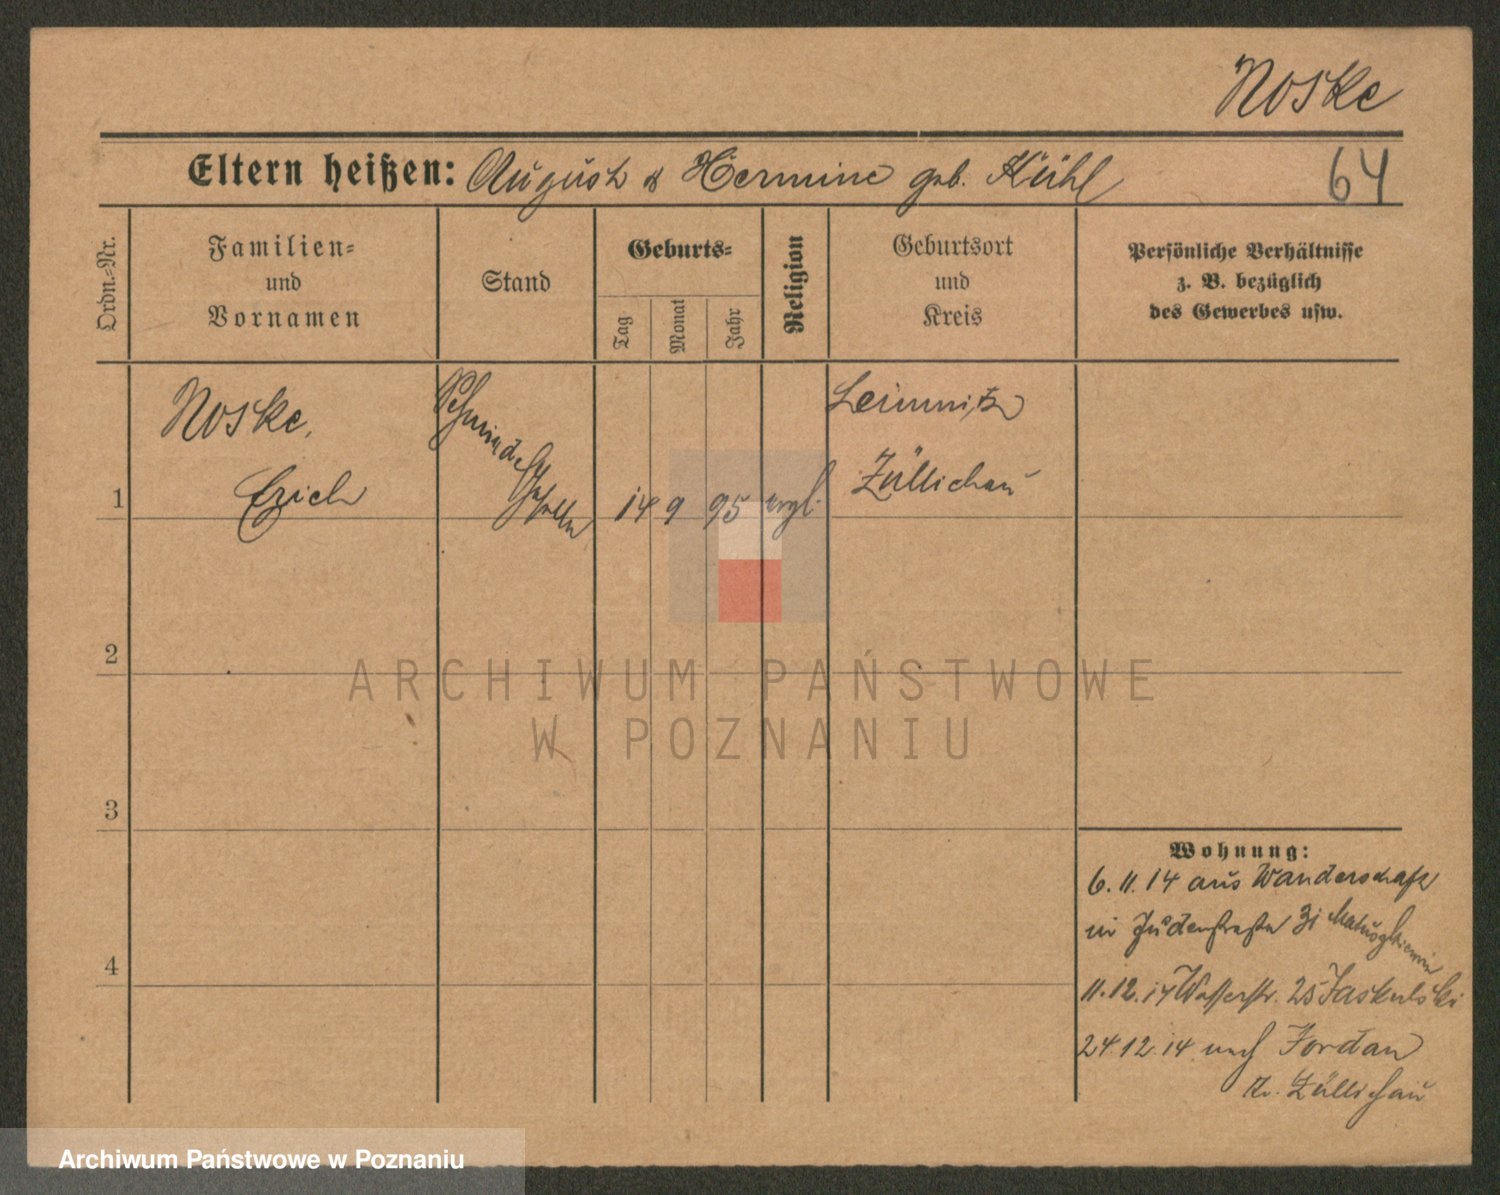 Noske
Eltern heißen: August & Hermine geb. Kühl
64
Ordn.-Nr.
Familien-
und
Vornamen
Stand
Geburts-
Tag
Monat
Jahr
Religion
Geburtsort
und
Kreis
Persönliche Verhältnisse
z. B. bezüglich
des Gewerbes usw.
1
Noske,
Erich
14 9 95 evgl.
Leimnitz
Züllichau
2
3
4
Wohnung:
6.11.14 aus Wanderschaft
in Judenstraße
11.12.14 Wasserstr. 25 Jaskulski
24.12.14 nach Jordan
Kr. Züllichau
ARCHIWUM PAŃSTWOWE
W POZNANIU
Archiwum Państwowe w Poznaniu